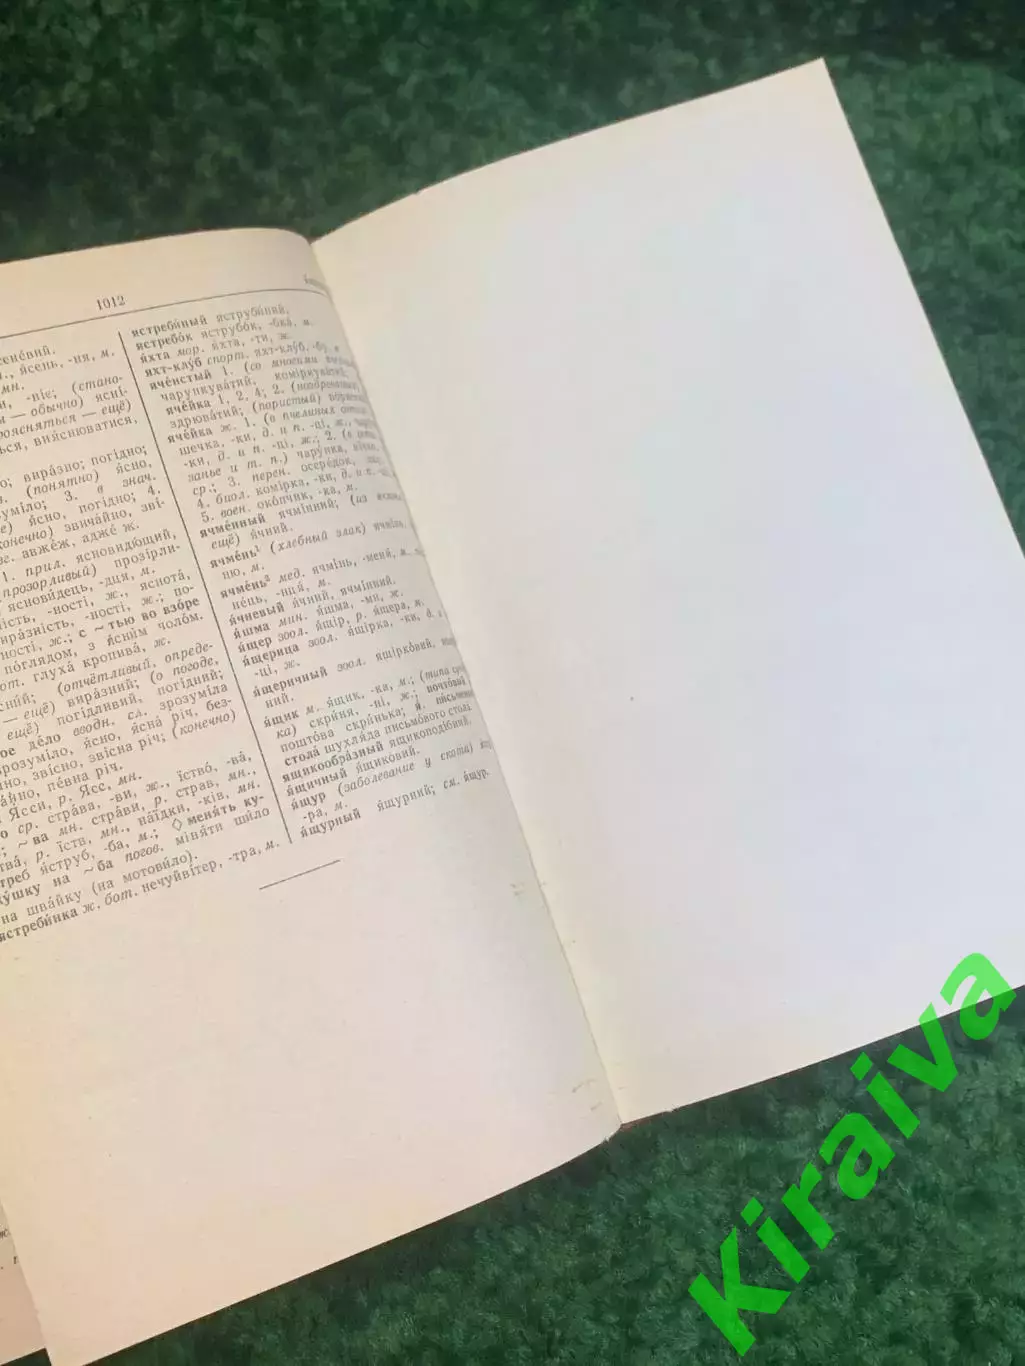 1012
сенéвий.
., я́сень, -ня, м.
мн.
-ніє; (стано-
— обычно) ясні-
роясняться — ещё)
ться, вия́снюватися,
о; вирáзно; погі́дно;
(понятно) я́сно,
зумíло; 3. в знач.
е) я́сно, погі́дно; 4.
конечно) звичáйно, зві-
авжéж, аджé ж.
1. прил. ясновидю́щий,
прозорливый) прозíрли-
ясновúдець, -дця, м.
ність, -ності, ж., яснотá,
рáзність, -ності, ж.; по-
ності, ж.; с ~тью во взóре
пóглядом, з я́сним чолóм.
от. глухá кропивá, ж.
сний; (отчётливый, опреде-
— ещё) вирáзний; (о погоде,
ещё) погíдливий, погíдний;
ое дéло вводн. сл. зрозумíло
зрозумíло, я́сно, я́сна річ, без-
но, звíсно, звíсна річ; (конечно)
áйно, пéвна річ.
Я́сси, р. Ясс, мн.
о ср. стрáва, -ви, ж., їствó, -вá,
; ~ва мн. стрáви, р. страв, мн.,
твá, р. їств, мн., наíдки, -ків, мн.
треб я́струб, -ба, м.; ◊ меня́ть ку-
кýшку на ~ба погов. міня́ти ши́ло
на швáйку (на мотовúло).
ястребúнка ж. бот. нечуйвíтер, -тра, м.
ястребúный яструбúний.
ястребóк яструбóк, -бкá, м.
я́хта мор. я́хта, -ти, ж.
яхт-клýб спорт. яхт-клýб, -бу, м.
ячéистый 1. (со многими
чарункувáтий, коміркувáтий;
ячéйка 1, 2, 4; 2. (ноздреватый)
здрювáтий; (пористый)
ячéйка ж. 1. (в пчелиных
шечка, -ки, д. и п. -ці, ж.,
-ки, д. и п. -ці, ж.; 2. (в
занье и т. п.) чарýнка,
ср.; 3. перен. осерéдок,
4. биол. комíрка, -ки, д. и п. -ці, ж.;
5. воен. окóпчик, -ка, м.
ячмéнный ячмíнний; (из ячменя
ещё) я́чний.
ячмéнь¹ (хлебный злак) ячмíнь,
ню, м.
ячмéнь² мед. ячмíнь, -меня́, м.
нець, -нця́, м.
я́чневый я́чний, ячмíнний.
я́шма мин. я́шма, -ми, ж.
я́щер зоол. я́щір, р. я́щера, м.
я́щерица зоол. я́щірка, -ки, д. и п.
-ці, ж.
я́щеричный зоол. ящіркóвий,
ний.
я́щик м. я́щик, -ка, м.; (типа
ка) скрúня, -ні, ж.; почтóвый
поштóва скрúнька; я. пúсьменного
столá шухля́да письмóвого столá
ящикообрáзный ящикоподíбний.
я́щичный я́щиковий.
я́щур (заболевание у скота)
-ра, м.
я́щурный я́щурний; см. я́щур.
Kiraiva